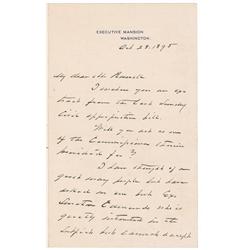 EXECUTIVE MANSION
WASHINGTON.
Oct 28. 1895
My dear Mr
I enclose you an ex-
tract from the last Sunday
Civil appropriation bill.
Will you act as one
of the Commissioners therein
provided for?
I have thought of a
good many people but have
settled on one but Ex
Senator Edmunds who is
greatly interested in the
subject but cannot accept